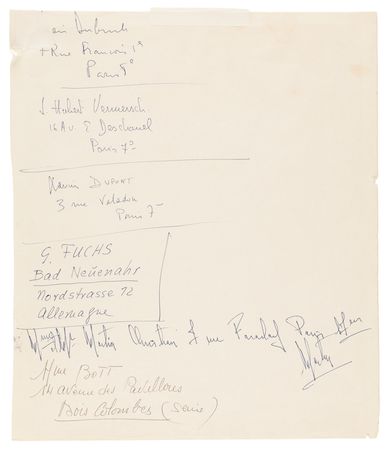 Rue François 1º
Paris 8º
J. Hobert Vermersch.
16 Av E Deschanel
Paris 7º
DUPONT
3 rue Valadon
Paris 7
G. FUCHS
Bad Neüenahr
Nordstrasse 12
Allemagne
Martin Christian rue Paris
Mme BOTT
14 avenue des Pavillons
Bois Colombes (Seine)